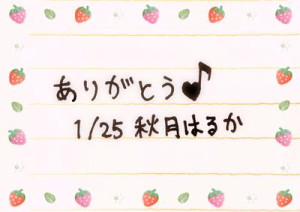 ありがとう♪
1/25 秋月はるか